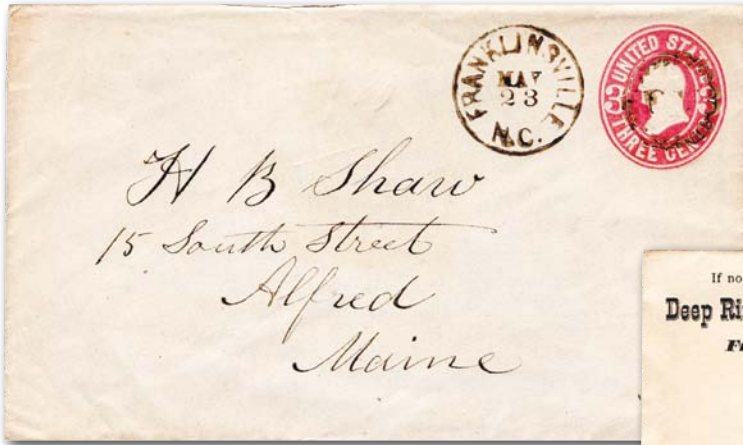 FRANKLINSVILLE
MAY
23
N.C.
UNITED STATE
THREE CENT
H B Shaw
15 South Street
Alfred
Maine
If no
Deep Ri